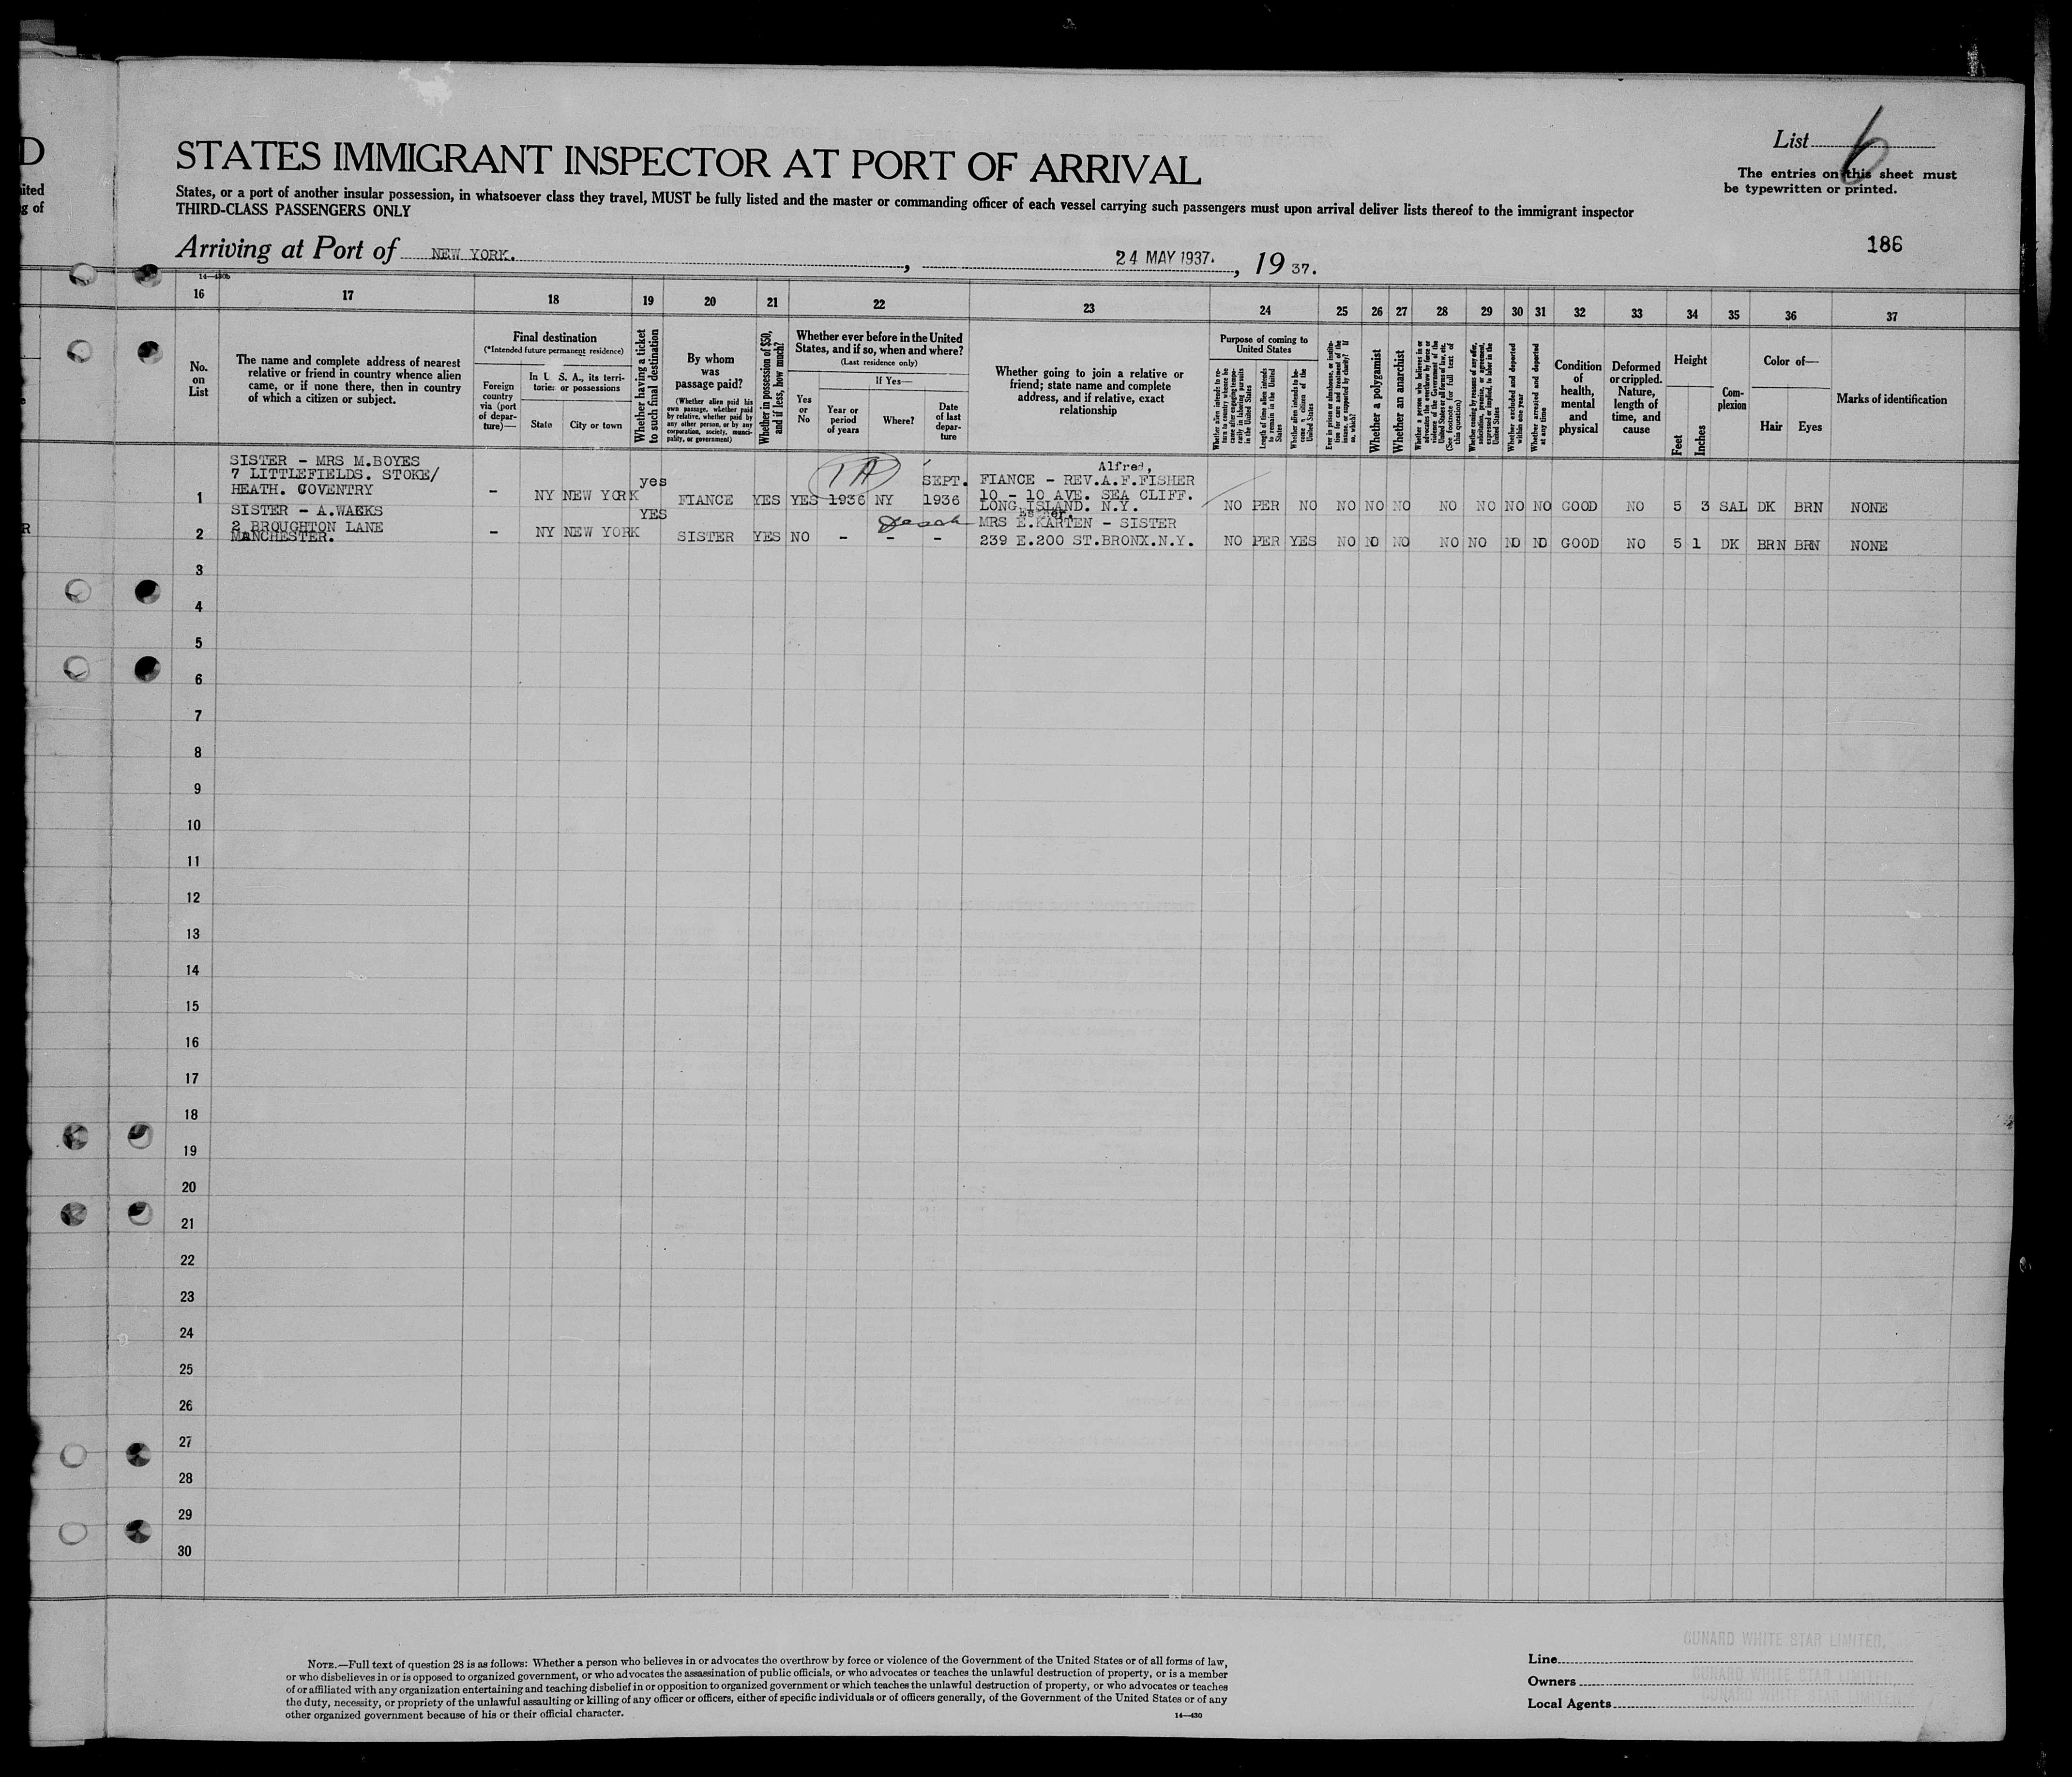 D
ited
g of
List 6
STATES IMMIGRANT INSPECTOR AT PORT OF ARRIVAL
The entries on this sheet must
be typewritten or printed.
States, or a port of another insular possession, in whatsoever class they travel, MUST be fully listed and the master or commanding officer of each vessel carrying such passengers must upon arrival deliver lists thereof to the immigrant inspector
THIRD-CLASS PASSENGERS ONLY
186
Arriving at Port of NEW YORK. , 24 MAY 1937. , 19 37.
14—430b
16 17 18 19 20 21 22 23 24 25 26 27 28 29 30 31 32 33 34 35 36 37
No.
on
List
The name and complete address of nearest
relative or friend in country whence alien
came, or if none there, then in country
of which a citizen or subject.
Final destination
(*Intended future permanent residence)
Foreign
country
via (port
of depar-
ture)—
In U. S. A., its terri-
tories or possessions
State City or town
Whether having a ticket
to such final destination
By whom
was
passage paid?
(Whether alien paid his
own passage, whether paid
by relative, whether paid by
any other person, or by any
corporation, society, munici-
pality, or government)
Whether in possession of $50,
and if less, how much?
Whether ever before in the United
States, and if so, when and where?
(Last residence only)
Yes
or
No
If Yes—
Year or
period
of years
Where?
Date
of last
depar-
ture
Whether going to join a relative or
friend; state name and complete
address, and if relative, exact
relationship
Purpose of coming to
United States
Whether alien intends to re-
turn to country whence he
came after engaging tempo-
rarily in laboring pursuits
in the United States
Length of time alien intends
to remain in the United
States
Whether alien intends to be-
come a citizen of the
United States
Ever in prison or almshouse, or institu-
tion for care and treatment of the
insane, or supported by charity? If
so, which?
Whether a polygamist
Whether an anarchist
Whether a person who believes in or
advocates the overthrow by force or
violence of the Government of the
United States or all forms of law, etc.
(See footnote for full text of
this question)
Whether coming by reasons of any offer,
solicitation, promise, or agreement,
expressed or implied, to labor in the
United States
Whether excluded and deported
within one year
Whether arrested and deported
at any time
Condition
of
health,
mental
and
physical
Deformed
or crippled.
Nature,
length of
time, and
cause
Height
Feet
Inches
Com-
plexion
Color of—
Hair Eyes
Marks of identification
SISTER - MRS M.BOYES
7 LITTLEFIELDS. STOKE/
HEATH. COVENTRY
1 - NY NEW YORK yes FIANCE YES YES 1936 NY SEPT. 1936
Alfred,
FIANCE - REV.A.F.FISHER
10 - 10 AVE. SEA CLIFF.
LONG ISLAND. N.Y.
NO PER NO NO NO NO NO NO NO NO GOOD NO 5 3 SAL DK BRN NONE
SISTER - A.WAEKS
2 BROUGHTON LANE
MANCHESTER.
2 - NY NEW YORK YES SISTER YES NO - - -
MRS E.KARTEN - SISTER
239 E.200 ST.BRONX.N.Y.
NO PER YES NO NO NO NO NO NO NO GOOD NO 5 1 DK BRN BRN NONE
R
3
4
5
6
7
8
9
10
11
12
13
14
15
16
17
18
19
20
21
22
23
24
25
26
27
28
29
30
NOTE.—Full text of question 28 is as follows: Whether a person who believes in or advocates the overthrow by force or violence of the Government of the United States or of all forms of law,
or who disbelieves in or is opposed to organized government, or who advocates the assassination of public officials, or who advocates or teaches the unlawful destruction of property, or is a member
of or affiliated with any organization entertaining and teaching disbelief in or opposition to organized government or which teaches the unlawful destruction of property, or who advocates or teaches
the duty, necessity, or propriety of the unlawful assaulting or killing of any officer or officers, either of specific individuals or of officers generally, of the Government of the United States or of any
other organized government because of his or their official character.
14—430
CUNARD WHITE STAR LIMITED.
Line
Owners CUNARD WHITE STAR LIMITED
Local Agents CUNARD WHITE STAR LIMITED